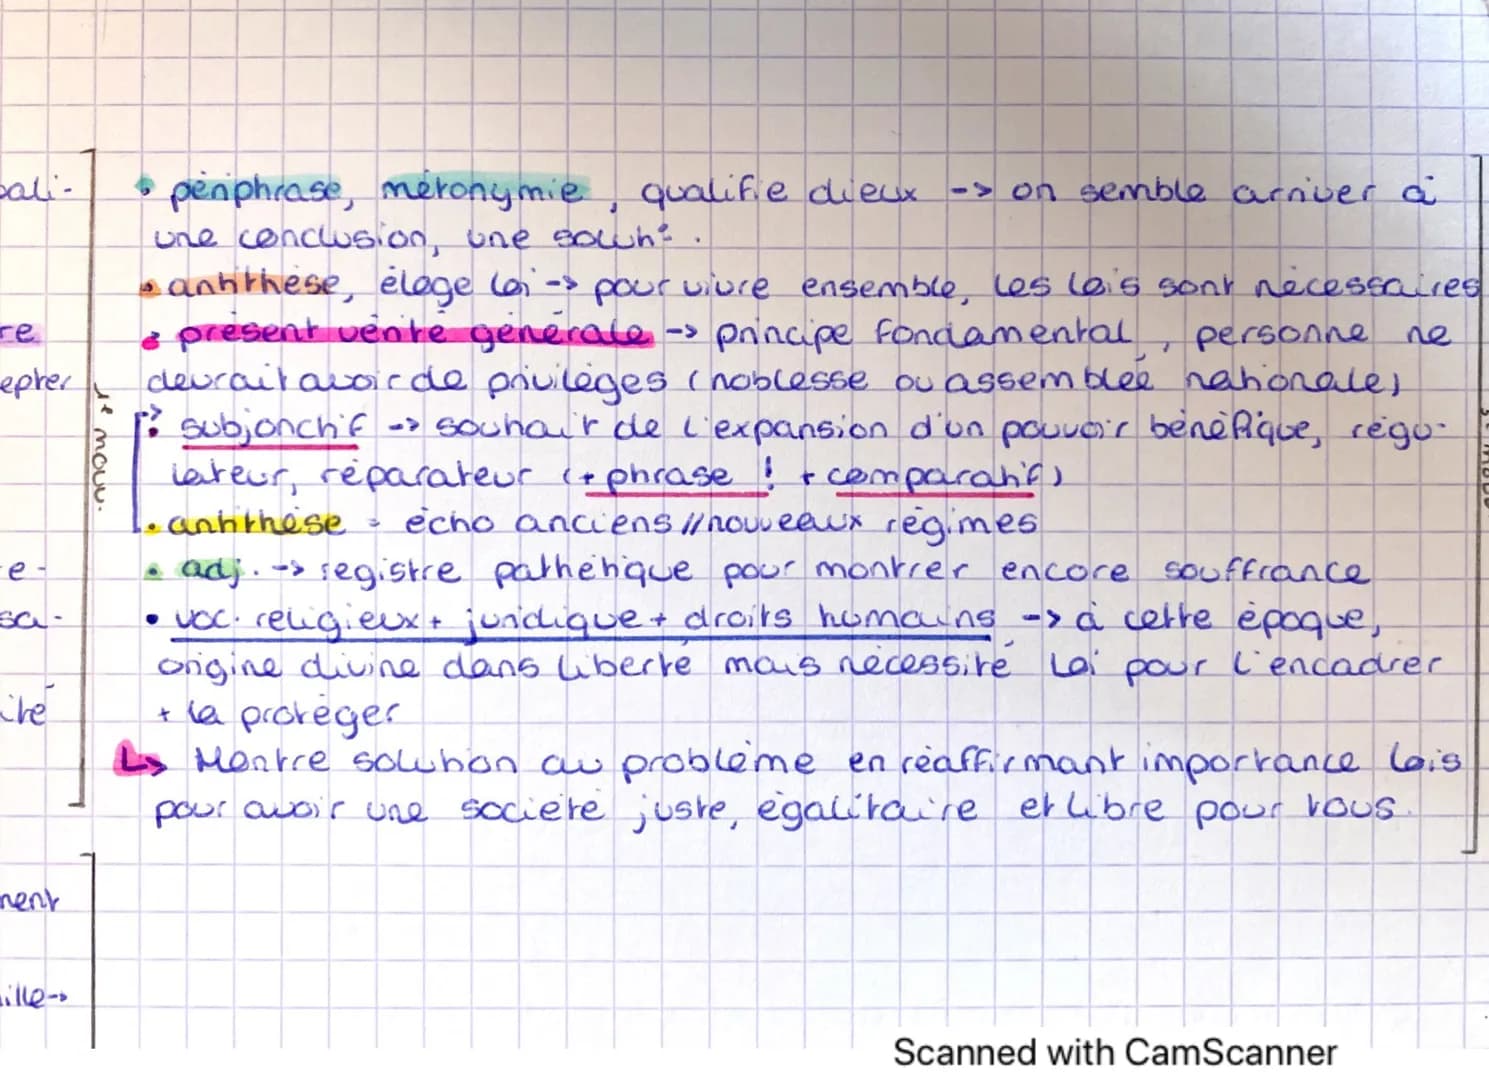 • périphrase, métonymie, qualifie dieux -> on semble arriver à
une conclusion, une solut°.
• antithèse, éloge loi -> pour vivre ensemble, les lois sont nécessaires
• présent vérité générale -> principe fondamental, personne ne
devrait avoir de privilèges (noblesse ou assemblée nationale)
• subjonctif -> souhait de l'expansion d'un pouvoir bénéfique, régu-
lateur, réparateur (+ phrase ! + comparatif)
• antithèse = écho anciens // nouveaux régimes
• adj. -> registre pathétique pour montrer encore souffrance
• voc. religieux + juridique + droits humains -> à cette époque,
origine divine dans liberté mais nécessité loi pour l'encadrer
+ la protéger
↳ Montre solution au problème en réaffirmant importance lois
pour avoir une société juste, égalitaire et libre pour tous.
pali-
re
epter
mouv.
e-
sa-
ité
ment
ille->
Scanned with CamScanner